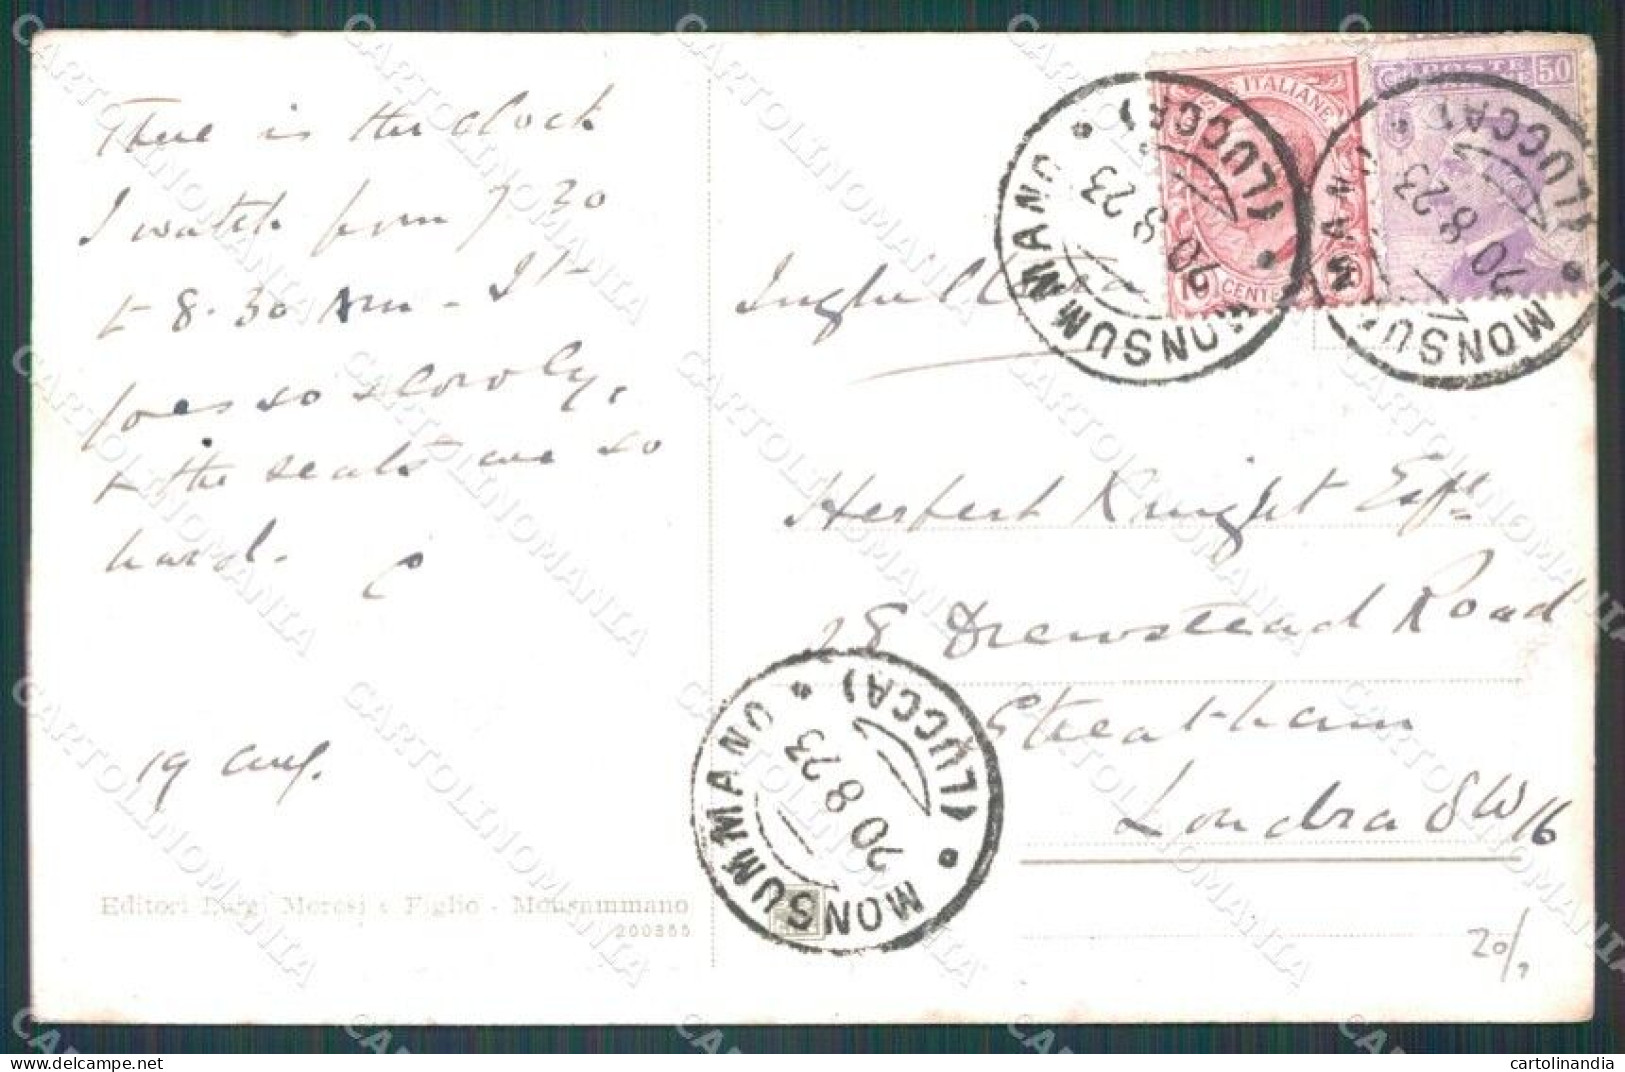 There is the clock
I watch from 7.30
to 8.30 Am - It
goes so slowly,
+ the seats are so
hard.
C
19 Aug.
Editori Luigi Moresi e Figlio - Monsummano
200355
Inghilterra
Herbert Knight Esqre
28 Drewstead Road
Streatham
Londra SW 16
20/
POSTE ITALIANE
10 CENT 10
POSTE 50
MONSUMMANO (LUCCA)
20 8 23
MONSUMMANO (LUCCA)
20 8 23
MONSUMMANO (LUCCA)
20 8 23
CARTOLINOMANIA
cartolinandia